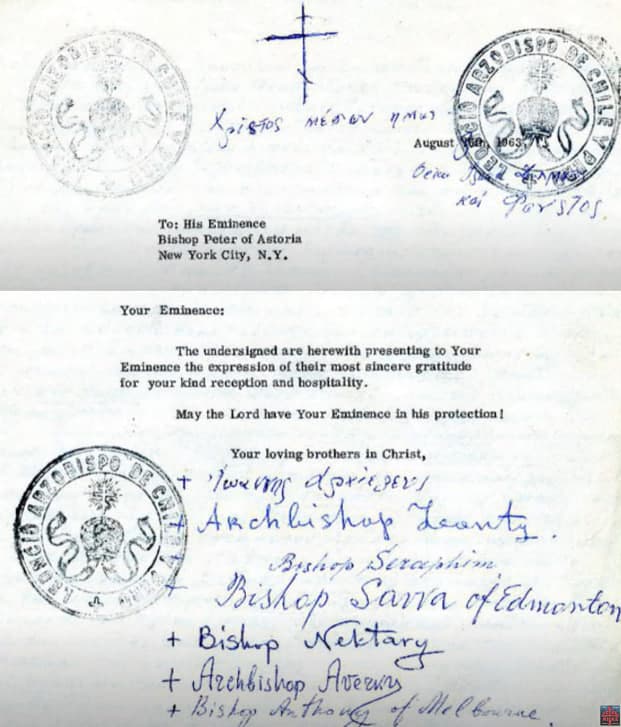 LEONCIO ARZOBISPO DE CHILE Y PERU
LEONCIO ARZOBISPO DE CHILE Y PERU
Χριστος
August 1963
και
To: His Eminence
Bishop Peter of Astoria
New York City, N.Y.
Your Eminence:
The undersigned are herewith presenting to Your
Eminence the expression of their most sincere gratitude
for your kind reception and hospitality.
May the Lord have Your Eminence in his protection!
Your loving brothers in Christ,
LEONCIO ARZOBISPO DE CHILE Y PERU
+ Ἰωάννης
+ Archbishop Leonty.
Bishop Seraphim
+ Bishop Savva of Edmonton
+ Bishop Nektary
+ Archbishop Averky
+ Bishop Anthony of Melbourne